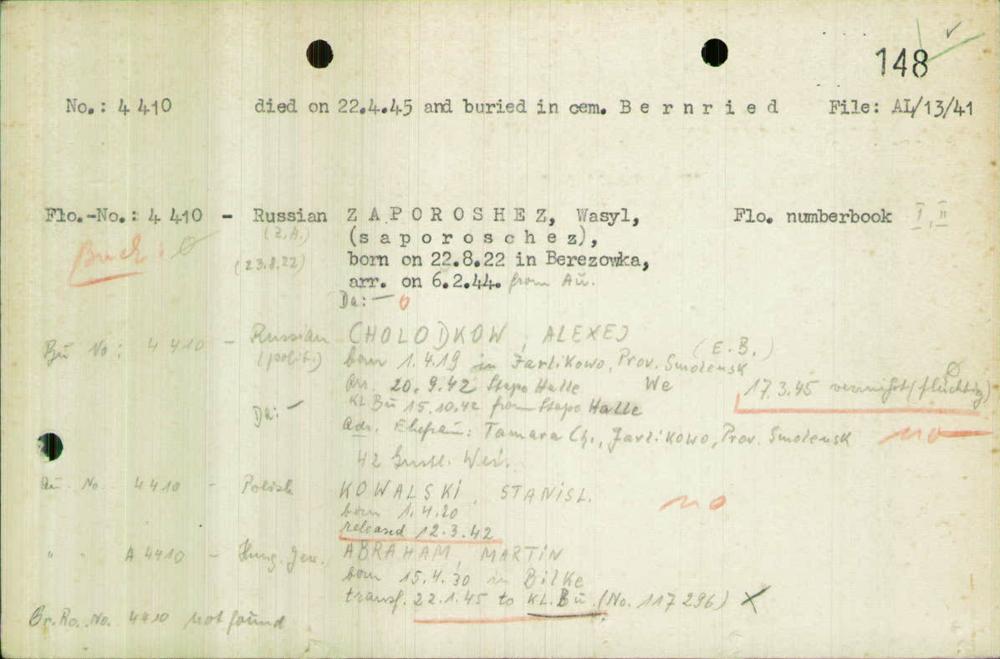 148
No.: 4 410 died on 22.4.45 and buried in cem. B e r n r i e d File: AL/13/41
Flo.-No.: 4 410 - Russian Z A P O R O S H E Z, Wasyl, Flo. numberbook I, II
(Z.A.) (s a p o r o s c h e z),
(23.8.22) born on 22.8.22 in Berezowka,
arr. on 6.2.44. from Au.
Da: - 0
Bu No: 4 410 - Russian CHOLODKOW, ALEXEJ
(polit.) born 1.4.19 in Jarlikowo, Prov. Smolensk (E.B.)
arr. 20.9.42 Stapo Halle We 17.3.45 vermißt (flüchtig)
Da: - KL Bu 15.10.42 from Stapo Halle
Adr. Ehefrau: Tamara Ch., Jarlikowo, Prov. Smolensk no
42 Gustl. Wei.
Au. No. 4410 - Polish KOWALSKI, STANISL. no
born 1.4.20
released 12.3.42
" " A 4410 - Hung. Jew. ABRAHAM, MARTIN
born 15.4.30 in Bilke
transf. 22.1.45 to KL. Bu. (No. 117296) X
Gr. Ro. No. 4410 not found